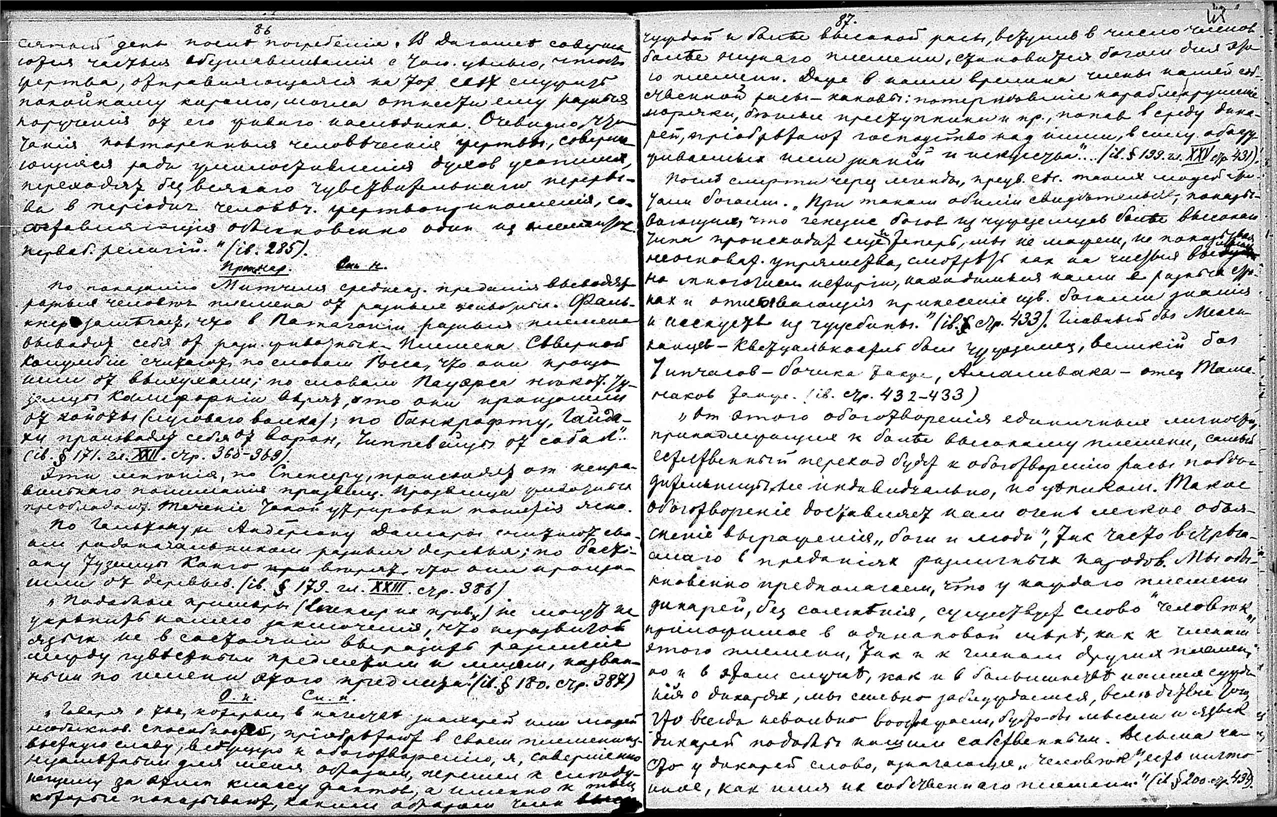 86
сятый день после погребенія. В Дагомеѣ соверша
ются частыя обезглавливанія с той цѣлью, чтобы
жертва, отправляющаяся на тот свѣт служить
покойному королю, могла отнести ему разныя
порученія от его живого наслѣдника. Очевидно,
повторенныя человѣческія жертвы, соверша
ющіяся ради умилостивленія духов усопших
переходят без всякаго чувствительнаго переры-
ва в періодич. человѣч. жертвоприношенія, со-
ставляющія обыкновенно один из
первоб. религій." (ib. 285).
Пример. См. н.
По показанію Митчеля преданія выводят
разныя человѣч. племена от разных животных. Фальк-
нер замѣчает, что в Патагоніи разныя племена
выводят себя от разн. животных. Племена Сѣверной
Колумбіи считают, по словам Росса, что они произо-
шли от выхухоли; по словам Пауэрса нѣкот. ту-
земцы Калифорніи вѣрят, что они произошли
от койоты (лугового волка); по Банкрофту, Гайда-
хи производят себя от ворон, Чиппевайцы от собак".
(ib. § 171. гл. XXII. стр. 365-369).
Эти мнѣнія, по Спенсеру, происходят от непра-
вильнаго пониманія прозвищ. Прозвища животных
преобладают. Теченіе такой ясно.
По Гальтону и Андерсону Дамары считают сво-
им родоначальником разныя деревья; по Басті-
ану туземцы Конго вѣрят, что они произо-
шли от деревьев. (ib. § 179. гл. XXIII. стр. 386)
"Подобные примеры (Спенсер их прив.) не могут не
укрѣпить нашего заключенія, что неразвитой
язык не в состояніи выразить различіе
между предметом и лицом, назван-
ным по имени этого предмета" (ib. § 180. стр. 387)
О. н. См. н.
"Говоря о том, которые, в качествѣ знахарей или людей
необыкнов. способностей, пріобрѣтают в своем племени
славу, ведущую к обоготворенію, я, совершенно
для меня образом, перешел к слѣду-
ющему за этим классу фактов, а именно к тѣм
которые показывают, каким образом член
87.
чуждой и болѣе высокой расы, вступив в число членов
болѣе низкаго племени, становится богом для это-
го племени. Даже в наши времена члены нашей соб-
ственной расы – каковы: потерпѣвшіе кораблекрушеніе
моряки, бѣглые преступники и пр., попав в среду дика-
рей, пріобрѣтают господство над ними, в силу обнару-
живаемых ими знаній и искусства"... (ib. § 199. гл. XXV стр. 431).
Послѣ смерти через легенды, таких людей
чали богами. „При таком обиліи свидѣтельств, показы-
вающих, что генезис богов из чужеземцев болѣе высокаго
типа происходит еще и теперь, мы не можем, не показав
неосноват. упрямства, смотрѣть как на чистый
на многія исторіи, находимыя нами в разных стра-
нах и описывающія принесеніе изв. богами знанія
и искусств из чужбины." (ib. § стр. 433). Главный бог Мекси-
канцев – Кветцалькоатль был чужеземец, великій бог
Чипчасов – Бочика также, Амаливака – отец Тама-
наков также. (ib. стр. 432-433)
„От этого обоготворенія единичных личностей,
принадлежащих к болѣе высокому племени, самый
естественный переход будет к обоготворенію расы побѣ-
дительницы, не индивидуально, но цѣликом. Такое
обоготвореніе доставляет нам очень легкое объя-
сненіе выраженія „боги и люди", так часто встрѣча-
емаго в преданіях различных народов. Мы обы-
кновенно предполагаем, что у каждаго племени
дикарей, без сомнѣнія, существует слово "человѣк",
примѣнимое в одинаковой мѣрѣ, как к членам
этого племени, так и к членам других племен,
но и в этом случаѣ, как и в большинствѣ наших сужде-
ній о дикарях, мы сильно заблуждаемся, вслѣдствіе того
что всегда невольно воображаем, будто-бы мысли и язык
дикарей подобны нашим собственным. Весьма ча-
сто у дикарей слово, означающее „человѣк", есть ничто
иное, как имя их собственнаго племени." (ib. § 200. стр. 434).